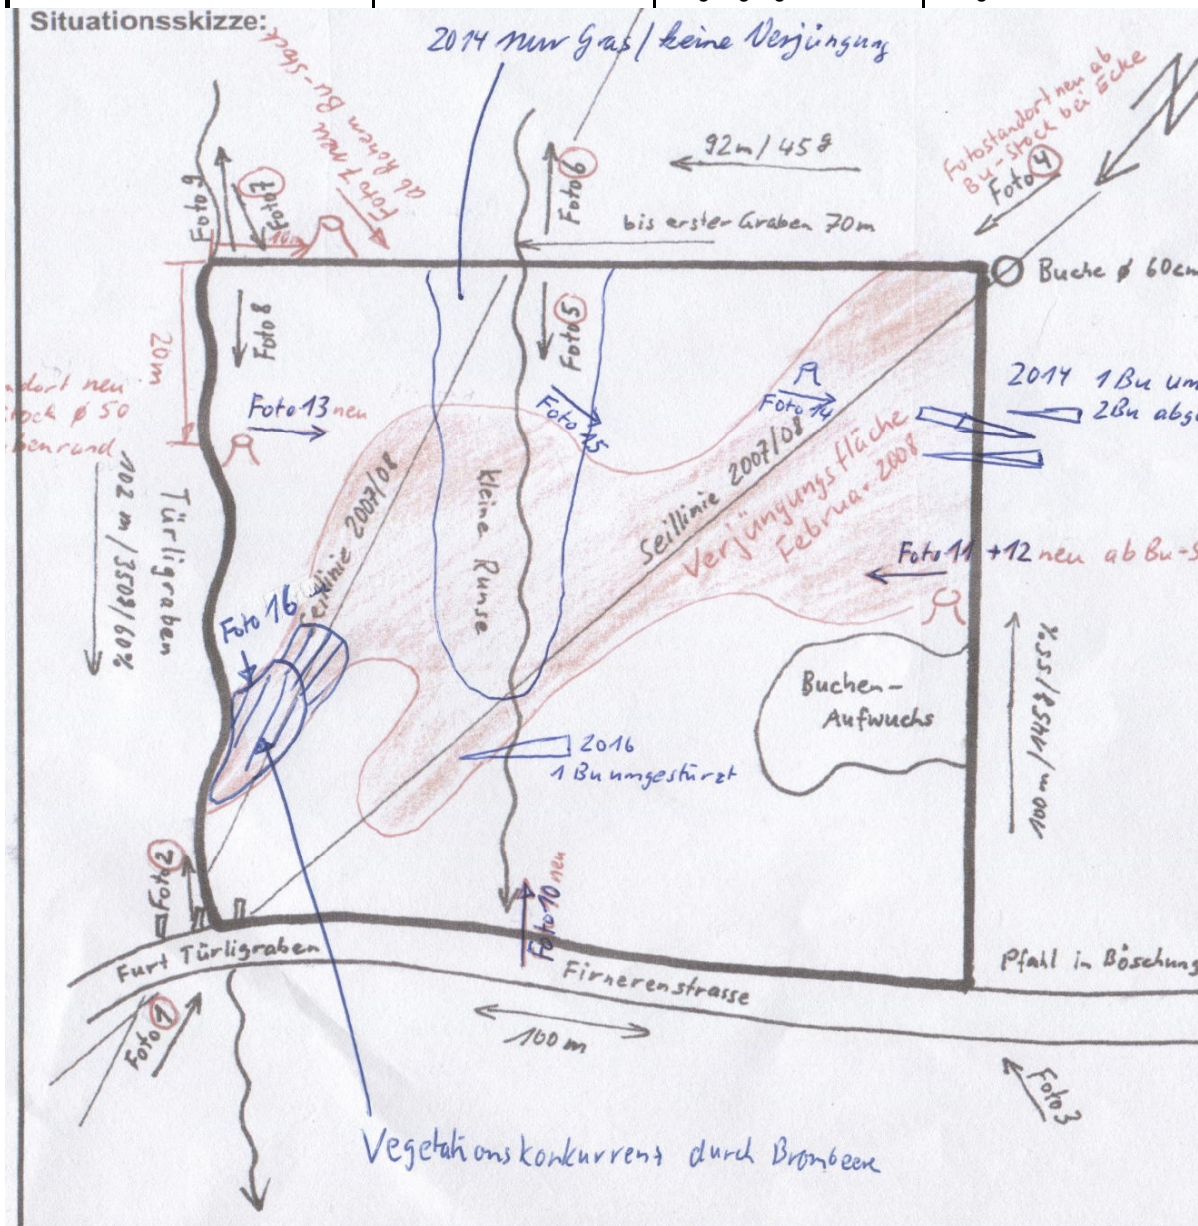 Situationsskizze:
2014 nur Gras / keine Verjüngung
Foto 7 neu Bu-Stock
ab hohem
Fotostandort neu ab
Bu-Stock bei Ecke
Foto 4
92m / 45g
bis erster Graben 70m
Foto 9
Foto 7
10m
Foto 6
Buche ø 60cm
20m
Foto 8
Foto 5
dort neu
tock ø 50
benrand
Foto 13 neu
Foto 15
Foto 14
2014 1 Bu um
2 Bu abg
102 m / 350g / 60%
Türligraben
Seillinie 2007/08
kleine Runse
Seillinie 2007/08
Verjüngungsfläche
Februar 2008
Foto 11 + 12 neu ab Bu-S
Foto 16
Buchen-
Aufwuchs
100 m / 145g / 55%
2016
1 Bu umgestürzt
Foto 2
Foto 10 neu
Furt Türligraben
Firnerenstrasse
Pfahl in Böschung
Foto 1
100m
Foto 3
Vegetationskonkurrenz durch Brombeere